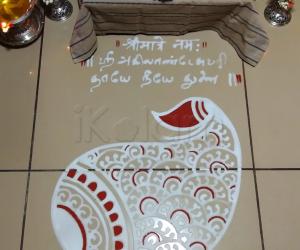 "श्रीमात्रे नमः"
"ஸ்ரீ அகிலாண்டேஸ்வரி
தாயே நீயே துணை"
iKolam